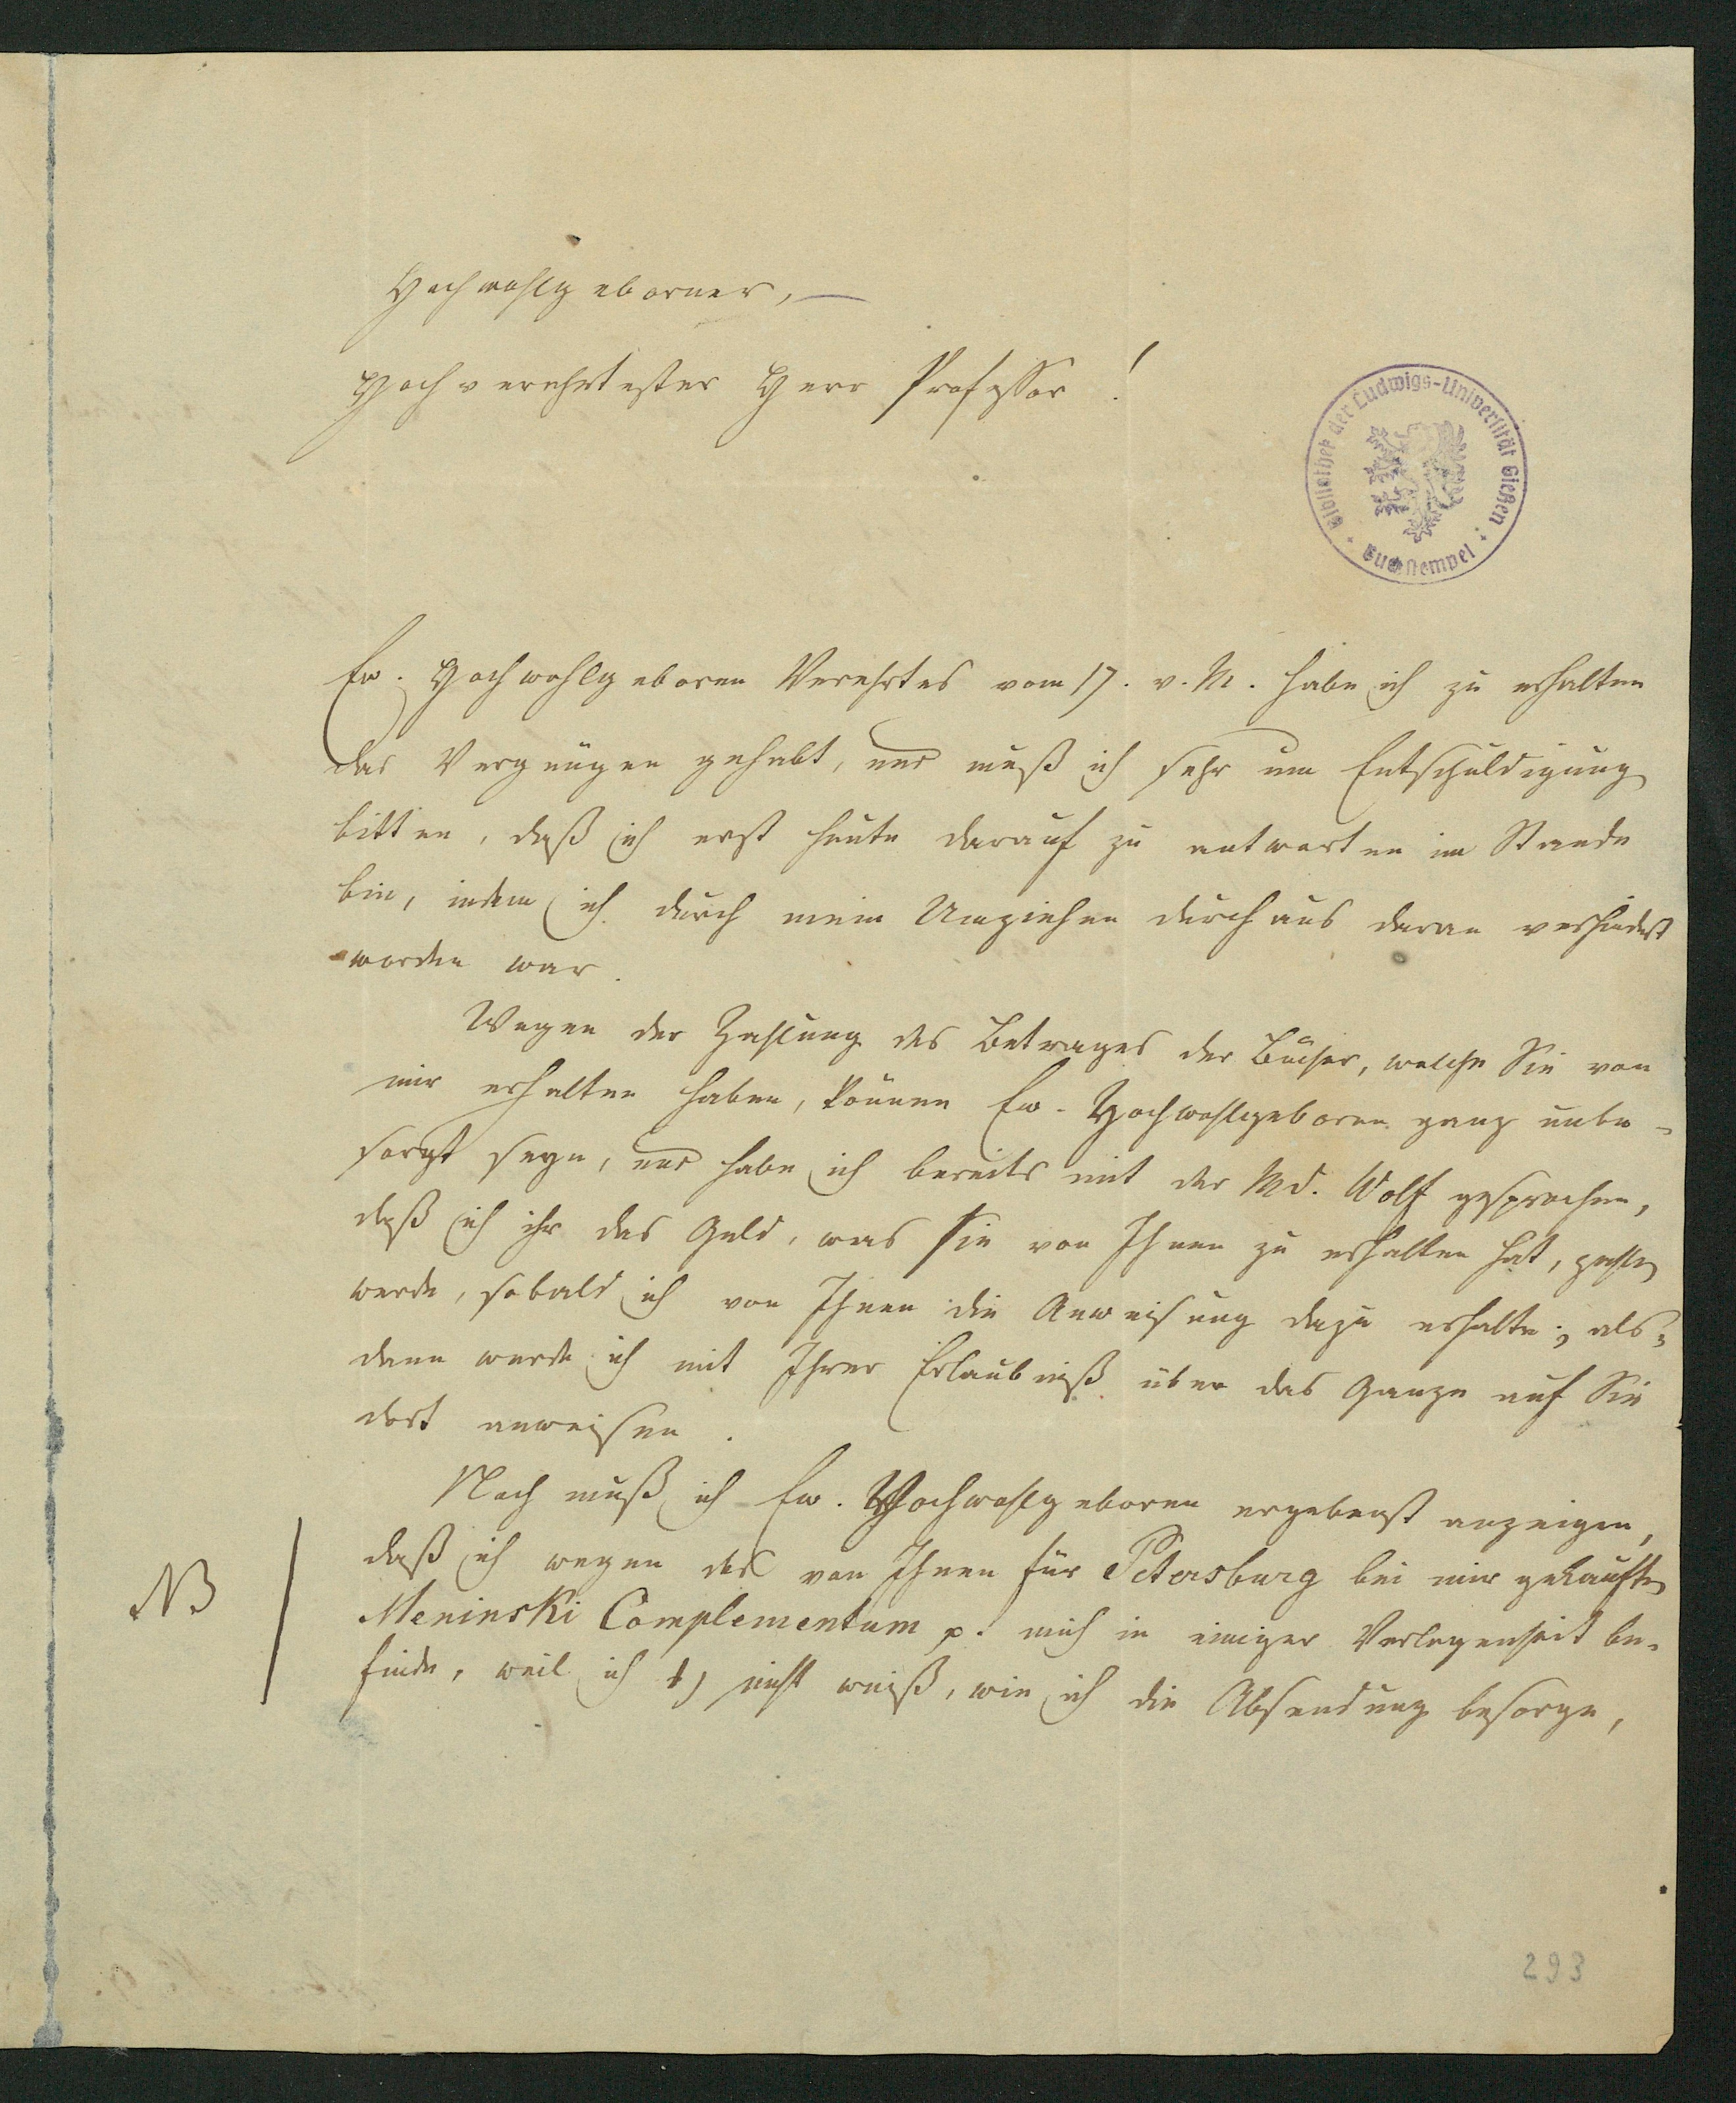 Hochwohlgeborner, —
Hochverehrtester Herr Professor!
Bibliothek der Ludwigs-Universität Gießen
Buchstempel
Ew. Hochwohlgeboren Verehrtes vom 17. v. M. habe ich zu erhalten
das Vergnügen gehabt, und muß ich sehr um Entschuldigung
bitten, daß ich erst heute darauf zu antworten im Stande
bin, indem ich durch mein Umziehen durchaus daran verhindert
worden war.
Wegen der Zahlung des Betrages der Bücher, welche Sie von
mir erhalten haben, können Ew. Hochwohlgeboren ganz unbe-
sorgt seyn, und habe ich bereits mit der Md. Wolff gesprochen,
daß ich ihr das Geld, was sie von Ihnen zu erhalten hat, zahlen
werde, sobald ich von Ihnen die Anweisung dazu erhalte; als-
dann werde ich mit Ihrer Erlaubniß über das Ganze auf Sie
dort anweisen.
Noch muß ich Ew. Hochwohlgeboren ergebenst anzeigen,
daß ich wegen des von Ihnen für Petersburg bei mir gekauften
NB
Meninski Complementum p. mich in einiger Verlegenheit be-
finde, weil ich 1) nicht weiß, wie ich die Absendung besorge,
293